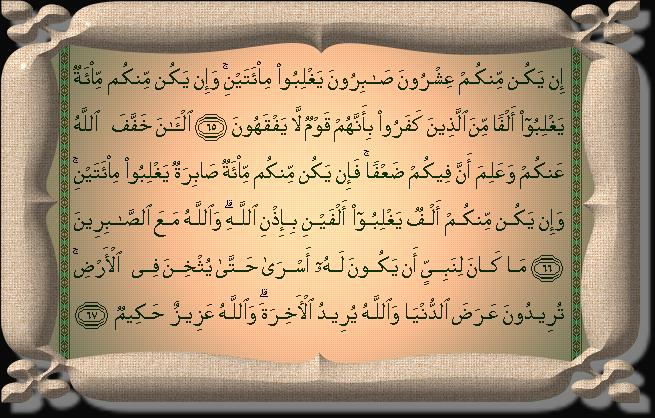 إِن يَكُن مِّنكُمْ عِشْرُونَ صَـٰبِرُونَ يَغْلِبُوا۟ مِا۟ئَتَيْنِ ۚ وَإِن يَكُن مِّنكُم مِّا۟ئَةٌ
يَغْلِبُوٓا۟ أَلْفًا مِّنَ ٱلَّذِينَ كَفَرُوا۟ بِأَنَّهُمْ قَوْمٌ لَّا يَفْقَهُونَ ٦٥ ٱلْـَٔـٰنَ خَفَّفَ ٱللَّهُ
عَنكُمْ وَعَلِمَ أَنَّ فِيكُمْ ضَعْفًا ۚ فَإِن يَكُن مِّنكُم مِّا۟ئَةٌ صَابِرَةٌ يَغْلِبُوا۟ مِا۟ئَتَيْنِ ۚ
وَإِن يَكُن مِّنكُمْ أَلْفٌ يَغْلِبُوٓا۟ أَلْفَيْنِ بِإِذْنِ ٱللَّهِ ۗ وَٱللَّهُ مَعَ ٱلصَّـٰبِرِينَ
٦٦ مَا كَانَ لِنَبِىٍّ أَن يَكُونَ لَهُۥٓ أَسْرَىٰ حَتَّىٰ يُثْخِنَ فِى ٱلْأَرْضِ ۚ
تُرِيدُونَ عَرَضَ ٱلدُّنْيَا وَٱللَّهُ يُرِيدُ ٱلْـَٔاخِرَةَ ۗ وَٱللَّهُ عَزِيزٌ حَكِيمٌ ٦٧